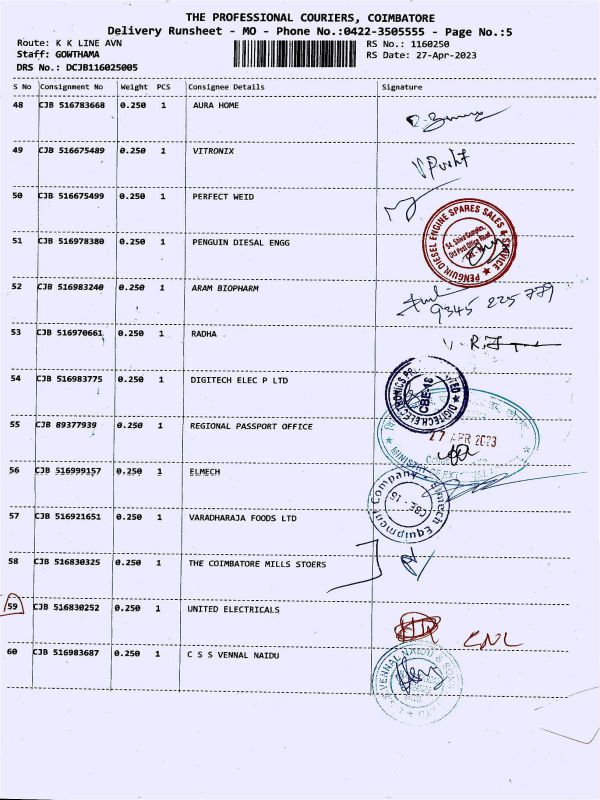 THE PROFESSIONAL COURIERS, COIMBATORE
Delivery Runsheet - MO - Phone No.:0422-3505555 - Page No.:5
Route: K K LINE AVN
RS No.: 1160250
Staff: GOWTHAMA
RS Date: 27-Apr-2023
DRS No.: DCJB116025005
S No Consignment No Weight PCS Consignee Details Signature
48 CJB 516783668 0.250 1 AURA HOME
49 CJB 516675489 0.250 1 VITRONIX
50 CJB 516675499 0.250 1 PERFECT WEID
PENGUIN DIESEL ENGINE SPARES SALES & SERVICE
51 CJB 516978380 0.250 1 PENGUIN DIESAL ENGG
52 CJB 516983240 0.250 1 ARAM BIOPHARM
9345 225 779
53 CJB 516970661 0.250 1 RADHA
54 CJB 516983775 0.250 1 DIGITECH ELEC P LTD
CBE-18
55 CJB 89377939 0.250 1 REGIONAL PASSPORT OFFICE
27 APR 2023
56 CJB 516999157 0.250 1 ELMECH
Equipment Company
CBE-18
57 CJB 516921651 0.250 1 VARADHARAJA FOODS LTD
58 CJB 516830325 0.250 1 THE COIMBATORE MILLS STOERS
59 CJB 516830252 0.250 1 UNITED ELECTRICALS
CNL
60 CJB 516983687 0.250 1 C S S VENNAL NAIDU